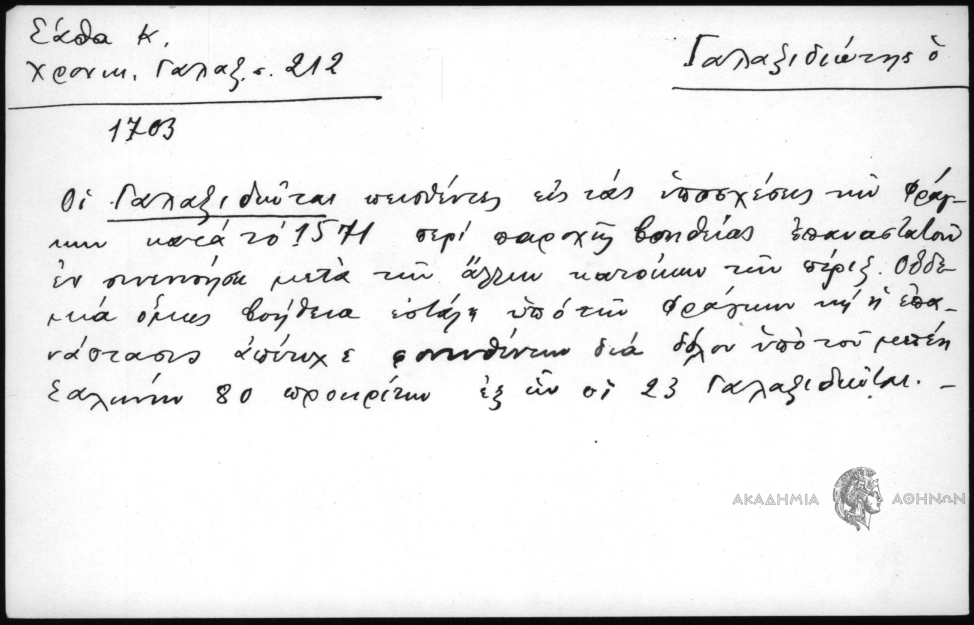 Σάθα Κ.
Χρονικ. Γαλαξ. σ. 212
Γαλαξιδιώτης ὁ
1703
Οἱ Γαλαξιδιῶται πεισθέντες εἰς τάς ὑποσχέσεις τῶν Φράγ-
κων κατά τό 1571 περί παροχῆς βοηθείας ἐπαναστατοῦν
ἐν συνεννοήσει μετά τῶν ἄλλων κατοίκων τῶν πέριξ. Οὐδε-
μιά ὅμως βοήθεια ἐστάλη ὑπό τῶν Φράγκων κ' ἡ ἐπα-
νάστασις ἀπέτυχε φονευθέντων διά δόλου ὑπό τοῦ μπέη
Σαλώνων 80 προκρίτων ἐξ ὧν οἱ 23 Γαλαξιδιῶται. -
ΑΚΑΔΗΜΙΑ ΑΘΗΝΩΝ